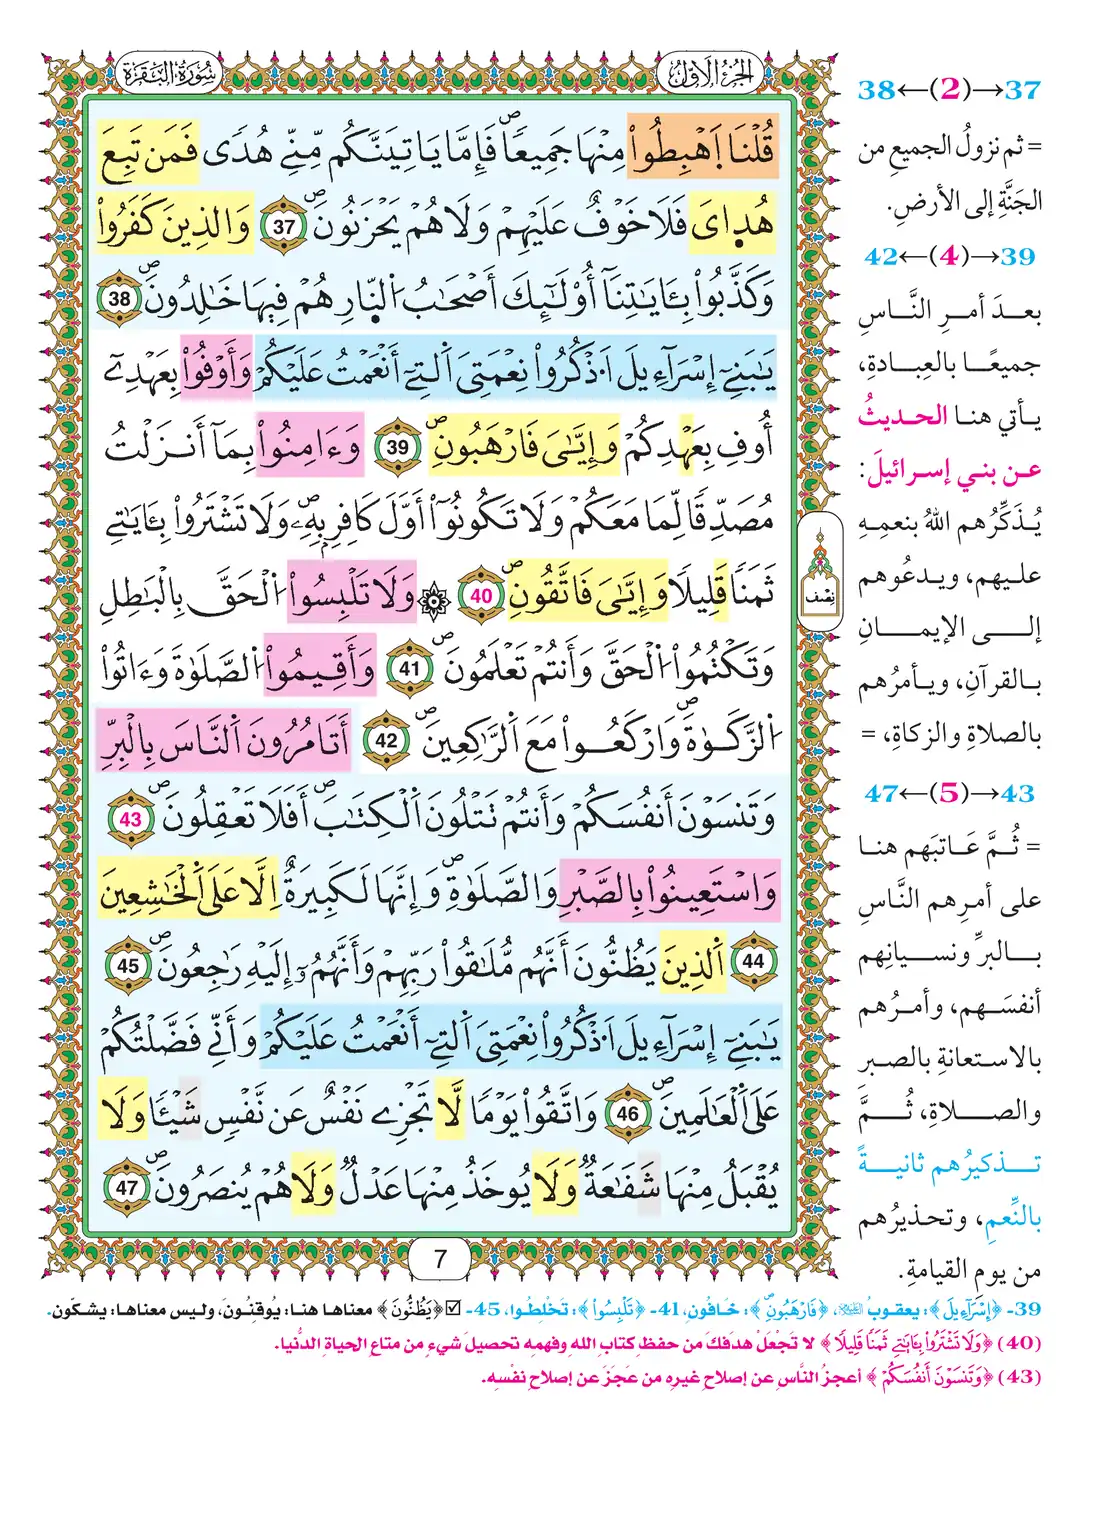 الجزء الأول
سورة البقرة
قُلْنَا اَهْبِطُواْ مِنْهَا جَمِيعاٗۖ فَإِمَّا يَاتِيَنَّكُم مِّنِّے هُدٗى فَمَن تَبِعَ
هُدَايَ فَلَا خَوْفٌ عَلَيْهِمْ وَلَا هُمْ يَحْزَنُونَۖ 37 وَالذِينَ كَفَرُواْ
وَكَذَّبُواْ بِـَٔايَٰتِنَآ أُوْلَٰٓئِكَ أَصْحَٰبُ اُ۬لنّ۪ارِ هُمْ فِيهَا خَٰلِدُونَۖ 38
يَٰبَنِےٓ إِسْرَآءِيلَ اَ۟ذْكُرُواْ نِعْمَتِيَ اَ۬لتِےٓ أَنْعَمْتُ عَلَيْكُمْ وَأَوْفُواْ بِعَهْدِےٓ
أُوفِ بِعَهْدِكُمْ وَإِيَّٰيَ فَارْهَبُونِۖ 39 وَءَامِنُواْ بِمَآ أَنزَلْتُ
مُصَدِّقاٗ لِّمَا مَعَكُمْ وَلَا تَكُونُوٓاْ أَوَّلَ كَافِرِۢ بِهِۦۖ وَلَا تَشْتَرُواْ بِـَٔايَٰتِے
ثَمَناٗ قَلِيلاٗ وَإِيَّٰيَ فَاتَّقُونِۖ 40 ۞ وَلَا تَلْبِسُواْ اُ۬لْحَقَّ بِالْبَٰطِلِ
وَتَكْتُمُواْ اُ۬لْحَقَّ وَأَنتُمْ تَعْلَمُونَۖ 41 وَأَقِيمُواْ اُ۬لصَّلَوٰةَ وَءَاتُواْ
اُ۬لزَّكَوٰةَۖ وَارْكَعُواْ مَعَ اَ۬لرَّٰكِعِينَۖ 42 أَتَامُرُونَ اَ۬لنَّاسَ بِالْبِرِّ
وَتَنسَوْنَ أَنفُسَكُمْ وَأَنتُمْ تَتْلُونَ اَ۬لْكِتَٰبَۖ أَفَلَا تَعْقِلُونَۖ 43
وَاسْتَعِينُواْ بِالصَّبْرِ وَالصَّلَوٰةِۖ وَإِنَّهَا لَكَبِيرَةٌ اِلَّا عَلَى اَ۬لْخَٰشِعِينَ
44 اَ۬لذِينَ يَظُنُّونَ أَنَّهُم مُّلَٰقُواْ رَبِّهِمْ وَأَنَّهُمُۥٓ إِلَيْهِ رَٰجِعُونَۖ 45
يَٰبَنِےٓ إِسْرَآءِيلَ اَ۟ذْكُرُواْ نِعْمَتِيَ اَ۬لتِےٓ أَنْعَمْتُ عَلَيْكُمْ وَأَنِّے فَضَّلْتُكُمْ
عَلَى اَ۬لْعَٰلَمِينَۖ 46 وَاتَّقُواْ يَوْماٗ لَّا تَجْزِے نَفْسٌ عَن نَّفْسٖ شَيْـٔاٗ وَلَا
يُقْبَلُ مِنْهَا شَفَٰعَةٞ وَلَا يُوخَذُ مِنْهَا عَدْلٞ وَلَا هُمْ يُنصَرُونَۖ 47
نصف
7
37→(2)←38
= ثم نزولُ الجميعِ من
الجَنَّةِ إلى الأرضِ.
39→(4)←42
بعدَ أمرِ النَّاسِ
جميعًا بالعِبادةِ،
يأتي هنا الحديثُ
عن بني إسرائيلَ:
يُذَكِّرُهم اللهُ بنعمِهِ
عليهم، ويدعُوهم
إلى الإيمانِ
بالقرآنِ، ويأمرُهم
بالصلاةِ والزكاةِ، =
43→(5)←47
= ثُمَّ عَاتبَهم هنا
على أمرِهم النَّاسِ
بالبرِّ ونسيانِهم
أنفسَهم، وأمرُهم
بالاستعانةِ بالصبر
والصلاةِ، ثُمَّ
تذكيرُهم ثانيةً
بالنِّعمِ، وتحذيرُهم
من يومِ القيامةِ.
39- ﴿إِسْرَآءِيلَ﴾: يعقوبُ، ﴿فَارْهَبُونِۖ﴾: خَافُونِ، 41- ﴿تَلْبِسُواْ﴾: تَخْلِطُوا، 45- ☑﴿يَظُنُّونَ﴾ معناها هنا: يُوقنُونَ، وليس معناها: يشكّون.
(40) ﴿وَلَا تَشْتَرُواْ بِـَٔايَٰتِے ثَمَناٗ قَلِيلاٗ﴾ لا تَجْعَلْ هدَفَكَ من حفظِ كتابِ اللهِ وفهمِه تحصيلَ شيءٍ من متاعِ الحياةِ الدُّنيا.
(43) ﴿وَتَنسَوْنَ أَنفُسَكُمْ﴾ أعجزُ النَّاسِ عن إصلاحِ غيرِه من عَجَزَ عن إصلاحِ نفْسِه.